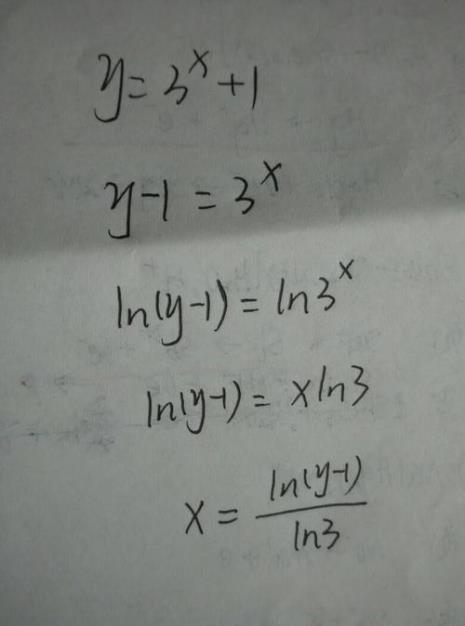 y=3^x+1
y-1=3^x
ln(y-1)=ln3^x
ln(y-1)=xln3
x=ln(y-1)/ln3